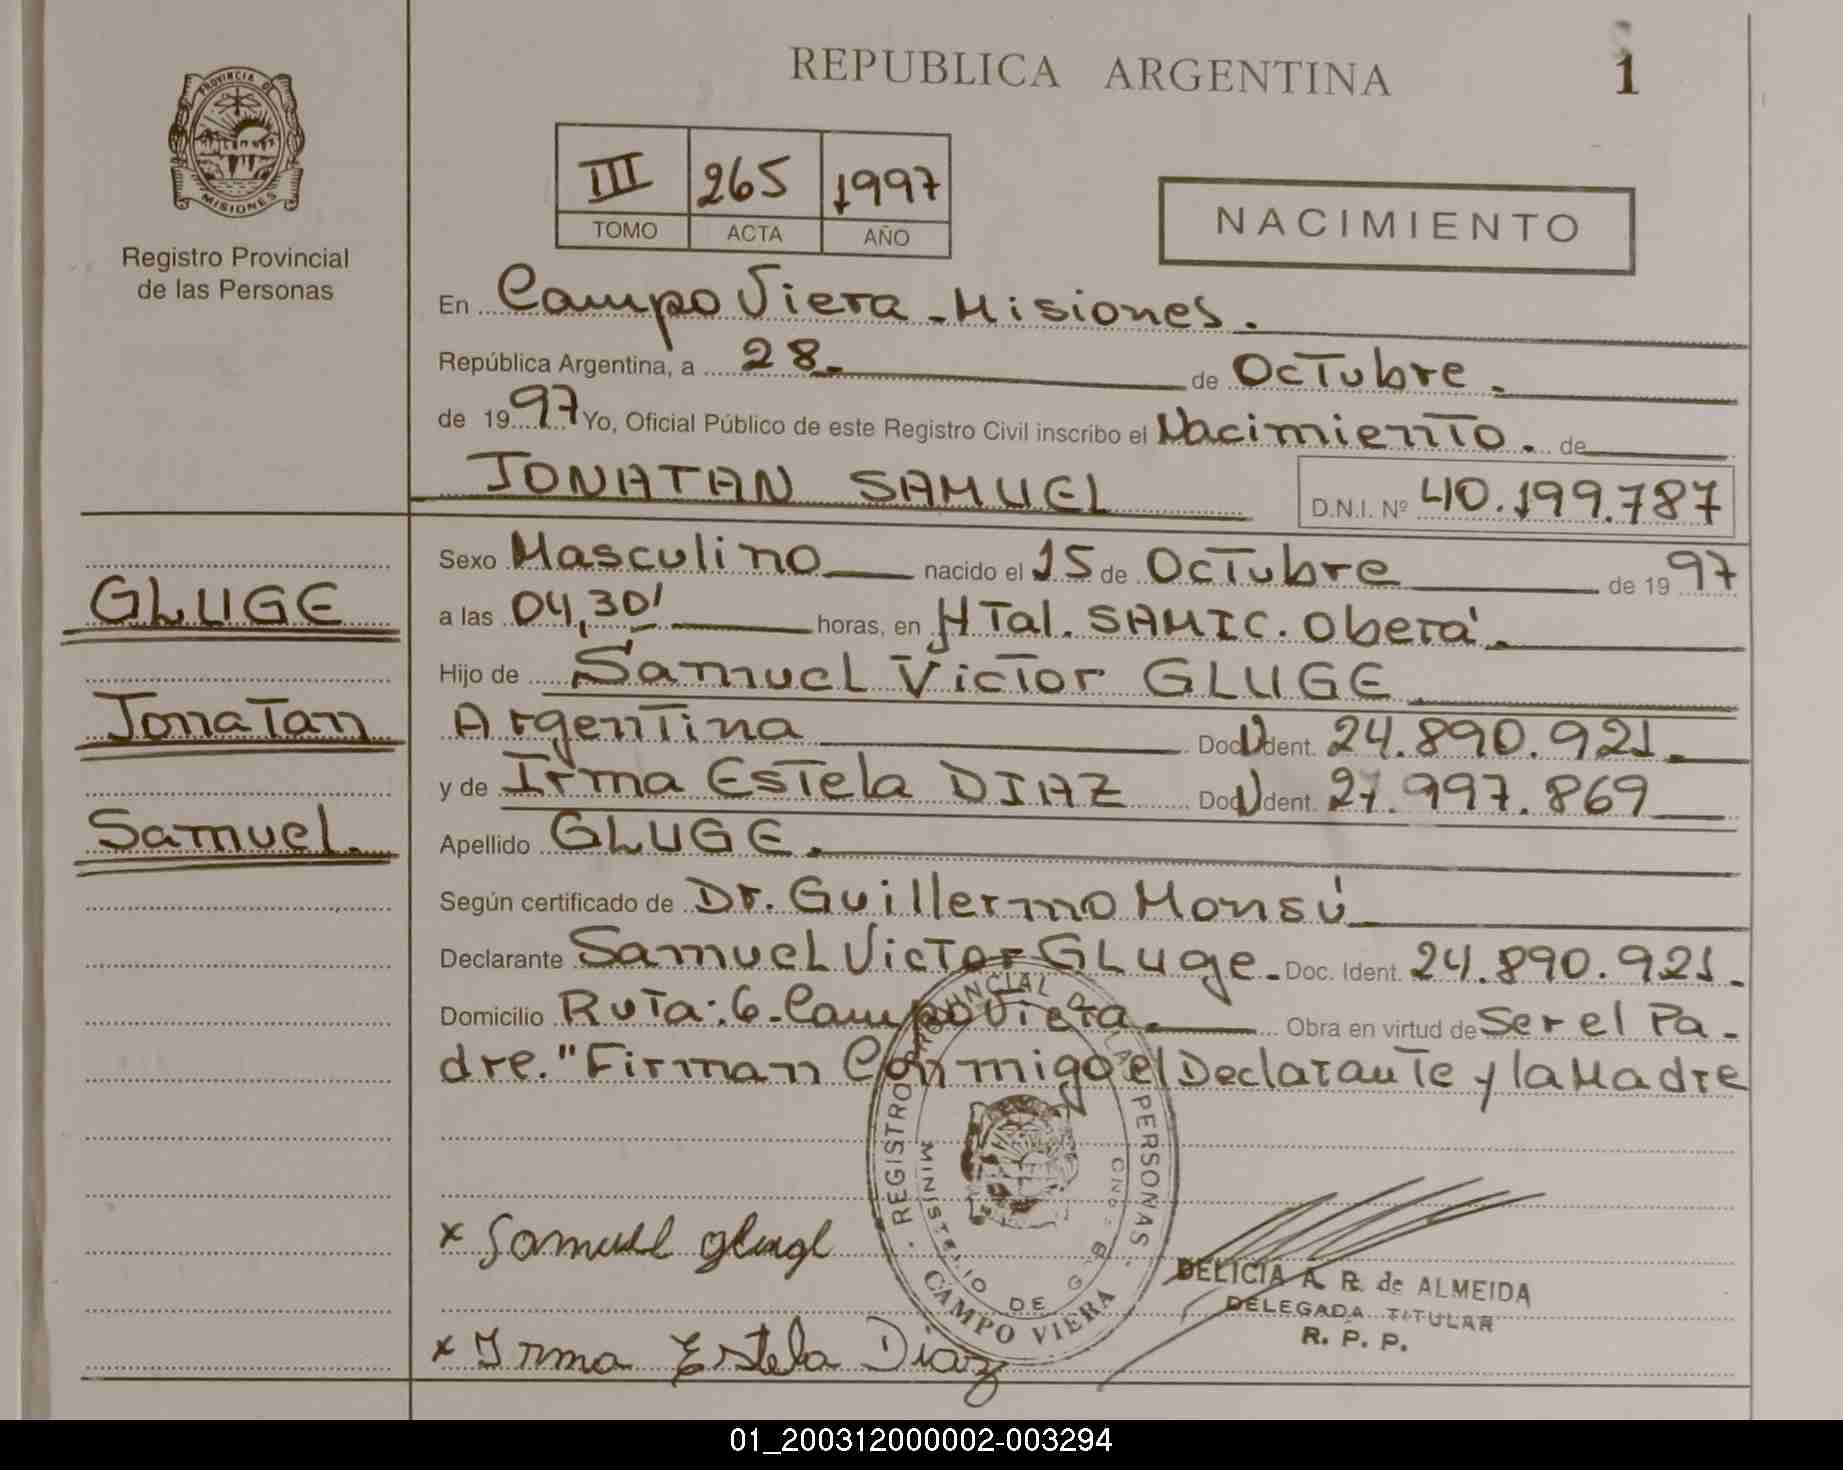 REPUBLICA ARGENTINA
1
PROVINCIA DE
MISIONES
Registro Provincial
de las Personas
III 265 1997
TOMO ACTA AÑO
NACIMIENTO
En Campo Viera - Misiones.
República Argentina, a 28 de Octubre
de 1997 Yo, Oficial Público de este Registro Civil inscribo el Nacimiento. de
JONATAN SAMUEL D.N.I. Nº 40.199.787
GLUGE
Jonatan
Samuel.
Sexo Masculino nacido el 15 de Octubre de 1997
a las 04,30' horas, en HTal. SAMIC. Oberá.
Hijo de Samuel Victor GLUGE
Argentina Doc. Ident. 24.890.921
y de Irma Estela DIAZ Doc. Ident. 27.997.869
Apellido GLUGE.
Según certificado de Dr. Guillermo Monsú
Declarante Samuel Victor Gluge. Doc. Ident. 24.890.921.
Domicilio Ruta: 6. Campo Viera. Obra en virtud de Ser el Pa-
dre. "Firman Conmigo el Declarante y la Madre
REGISTRO PROVINCIAL DE LAS PERSONAS
MINISTERIO DE GOB.
CAMPO VIERA
x Samuel gluge
DELICIA A. R. de ALMEIDA
DELEGADA TITULAR
R. P. P.
x Irma Estela Diaz
01_200312000002-003294